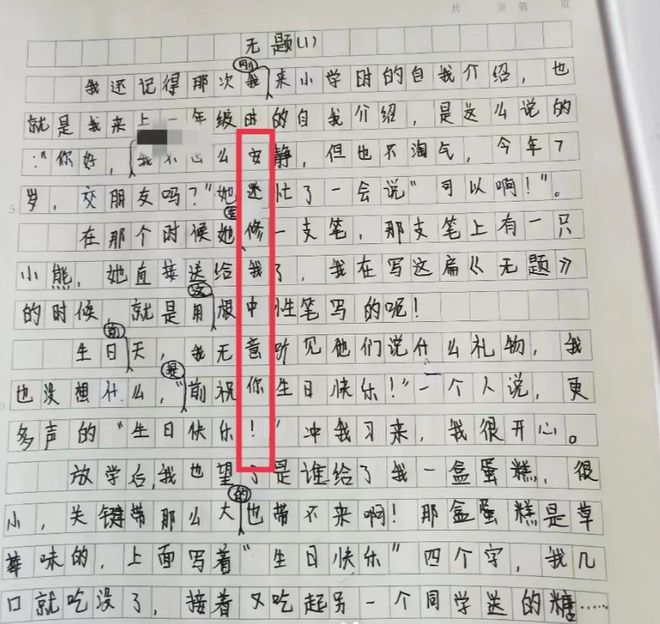 共 页 第 页
无题(1)
我还记得那次我刚来小学时的自我介绍，也
就是我来上一年级时的自我介绍，是这么说的
：“你好，我不怎么安静，但也不淘气，今年7
岁，交朋友吗？”她迷忙了一会说“可以啊！”。
在那个时候她在修一支笔，那支笔上有一只
小熊，她直接送给我了，我在写这扁《无题》
的时候，就是用这根中性笔写的呢！
生日前天，我无意听见他们说什么礼物，我
也没想什么，是“前祝你生日快乐！”一个人说，更
多声的“生日快乐！”冲我习来，我很开心。
放学后，我也望了是谁给了我一盒蛋糕，很
小，关键带那么大的也带不来啊！那盒蛋糕是草
莓味的，上面写着“生日快乐”四个字，我几
口就吃没了，接着又吃起另一个同学送的糖……